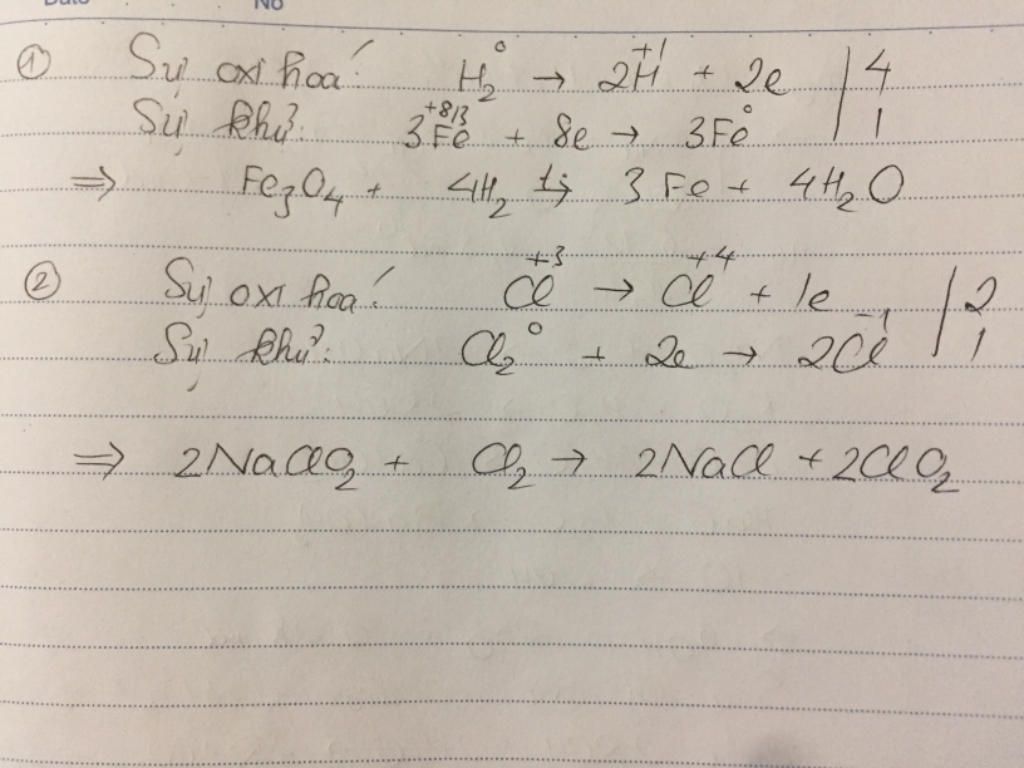 Date No
① Sự oxi hoá: H₂⁰ → 2H⁺¹ + 2e | 4
Sự khử: 3Fe⁺⁸ᐟ³ + 8e → 3Fe⁰ | 1
⇒ Fe₃O₄ + 4H₂ →(t°) 3Fe + 4H₂O
② Sự oxi hoá: Cl⁺³ → Cl⁺⁴ + 1e | 2
Sự khử: Cl₂⁰ + 2e → 2Cl⁻¹ | 1
⇒ 2NaClO₂ + Cl₂ → 2NaCl + 2ClO₂